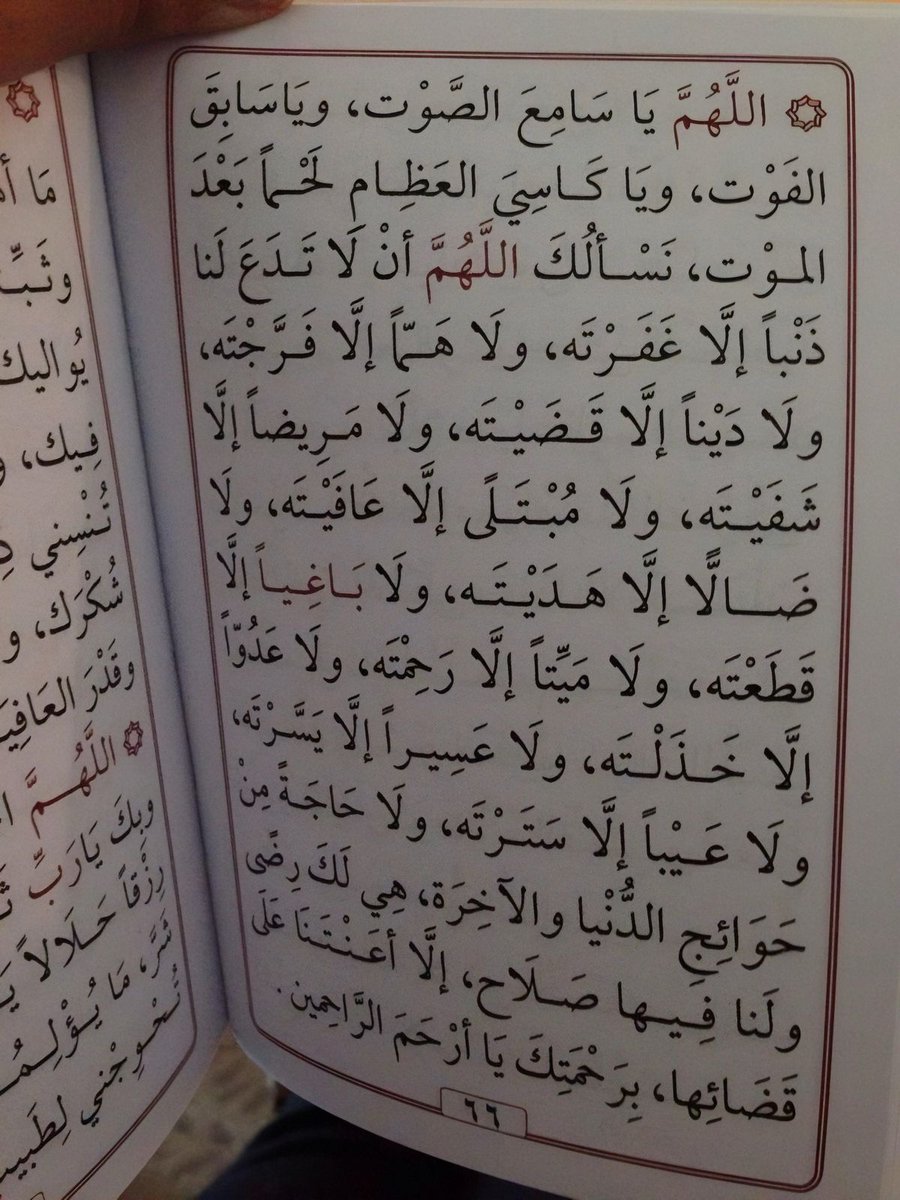 اللَّهُمَّ يَا سَامِعَ الصَّوْت، ويَاسَابِقَ
الفَوْت، ويَا كَاسِيَ العَظِامِ لَحْماً بَعْدَ
الموْت، نَسْألُكَ اللَّهُمَّ أنْ لَا تَدَعَ لَنا
ذَنْباً إلَّا غَفَرْتَه، ولَا هَمّاً إلَّا فَرَّجْتَه،
ولَا دَيْناً إلَّا قَضَيْتَه، ولَا مَرِيضاً إلَّا
شَفَيْتَه، ولَا مُبْتَلًى إلَّا عَافَيْتَه، ولَا
ضَالًّا إلَّا هَدَيْتَه، ولَا بَاغِياً إلَّا
قَطَعْتَه، ولَا مَيِّتاً إلَّا رَحِمْتَه، ولَا عَدُوّاً
إلَّا خَذَلْتَه، ولَا عَسِيراً إلَّا يَسَّرْتَه،
ولَا عَيْباً إلَّا سَتَرْتَه، ولَا حَاجَةً مِنْ
حَوَائِجِ الدُّنْيا والآخِرَة، هِي لَكَ رِضًى
ولَنا فِيها صَلَاح، إلَّا أعَنْتَنَا عَلَى
قَضَائِها، بِرَحْمَتِكَ يَا أرْحَمَ الرَّاحِمِين.
٦٦
مَا
يُواليك
فِيك، و
تُنْسِني
شُكْرَك، و
وقَدْرَ
اللَّهُمَّ
وبِكَ يَارَبِّ
رِزْقاً حَلَالاً
شَرَّ، مَا
تُحْوِجْني